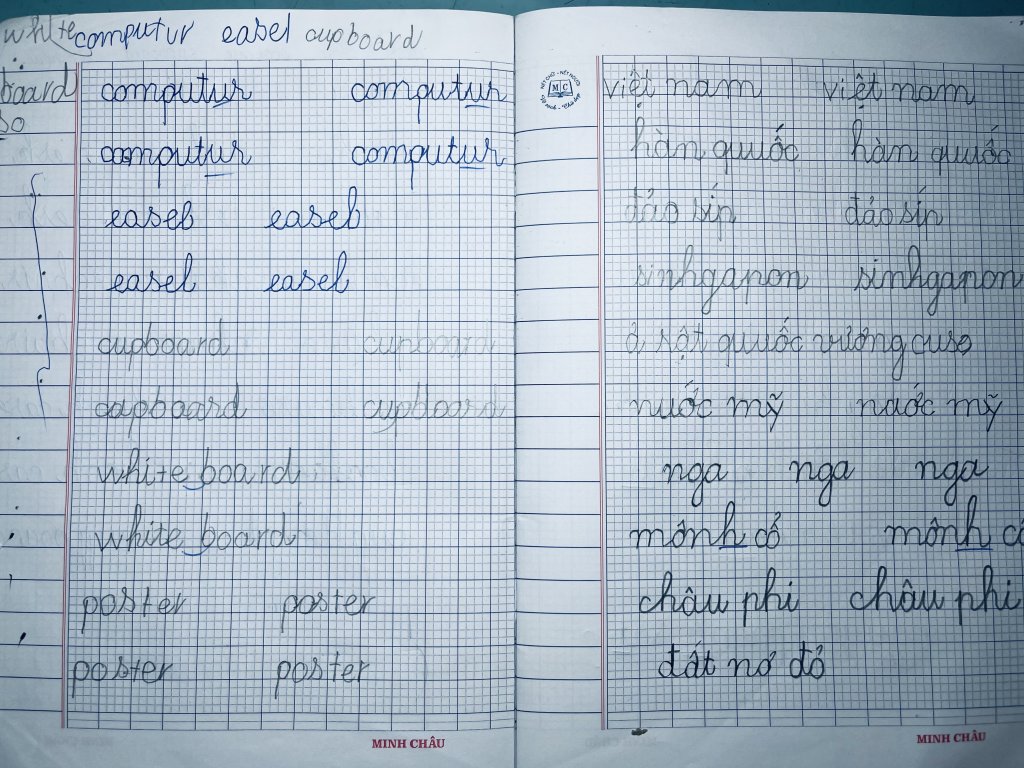 white computur easel cupboard
board computur computur
so computur computur
easel easel
easel easel
cupboard cupboard
cupboard cupboard
white board
white board
poster poster
poster poster
MINH CHÂU
NÉT CHỮ - NẾT NGƯỜI
MC
việt nam việt nam
hàn quuốc hàn quuốc
đảo síp đảo síp
sinhgapon sinhgapon
ả sột quuốc vương cuso
nước mỹ nước mỹ
nga nga nga
mônh cổ mônh cổ
châu phi châu phi
đất nơ đỏ
MINH CHÂU